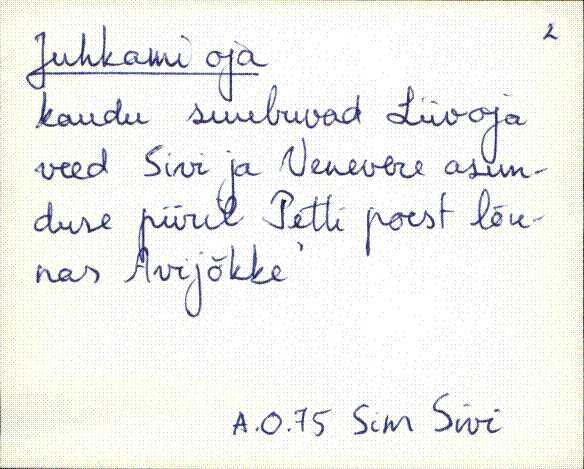 2
Juhkami oja
kaudu suubuvad Liivoja
veed Sivi ja Venevere asun-
duse piiril Petti poest lõu-
nas Avijõkke
A.O.75 Sim Sivi